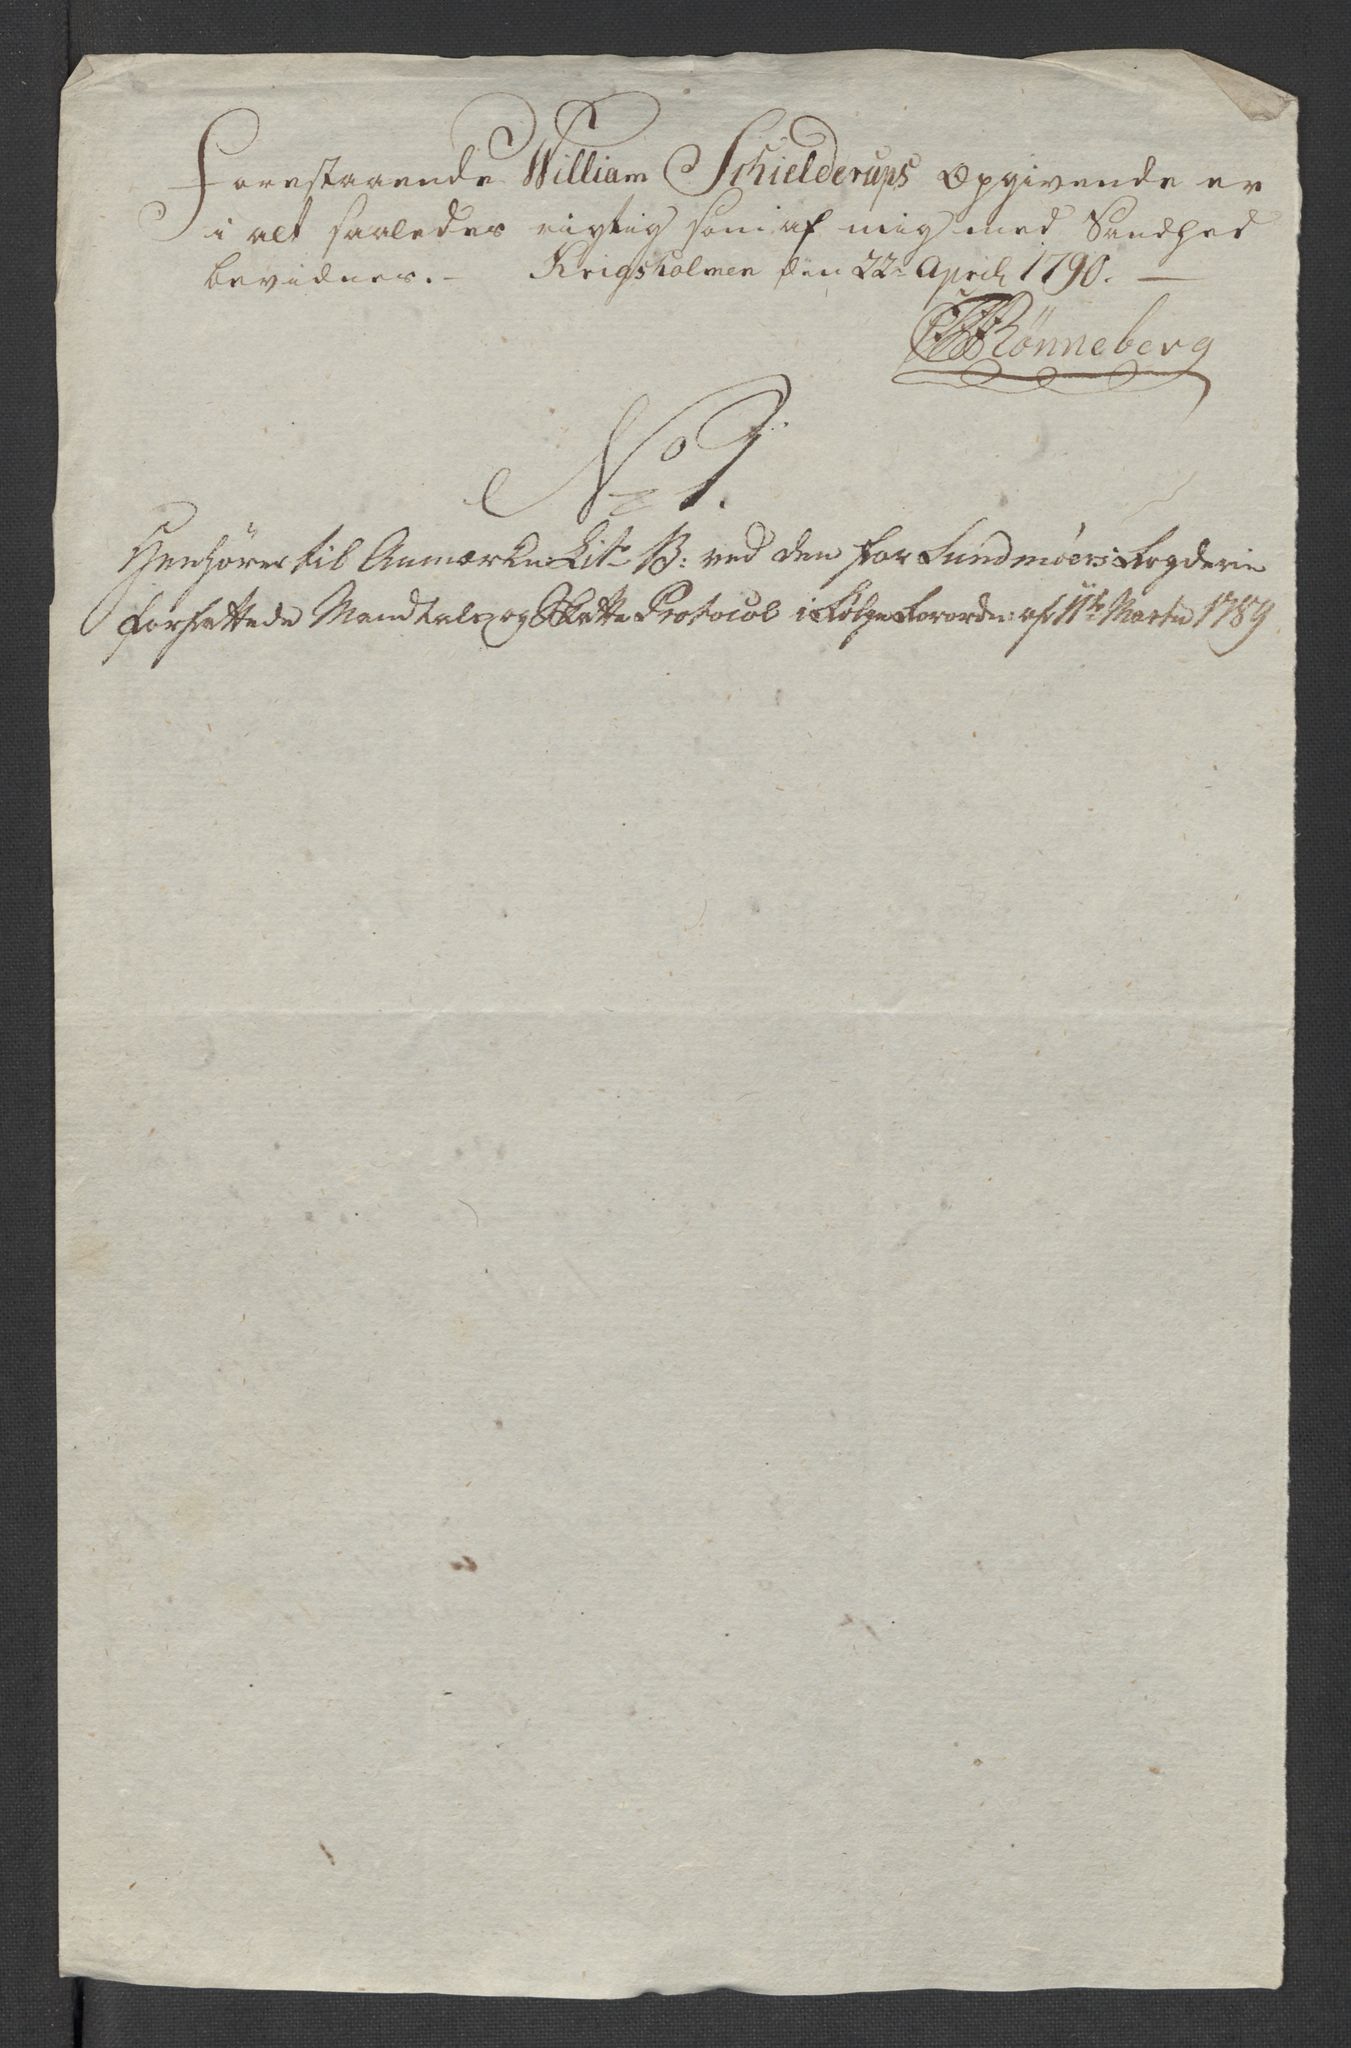 Forestaaende William Schielderups Opgivende er
i alt saaledes rigtig som af mig med Sandhed
bevidnes. – Krigsholmen den 22de April 1790. —
Rønneberg
No 1.
Henhører til Anmærkn: Litr B: ved den for Sundmøers Fogderie
forfattede Mandtals og Skatte Protocol i Følge Forordn: af 11te Martii 1789